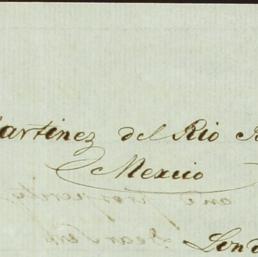 artinez del Rio
Mexico
Lond